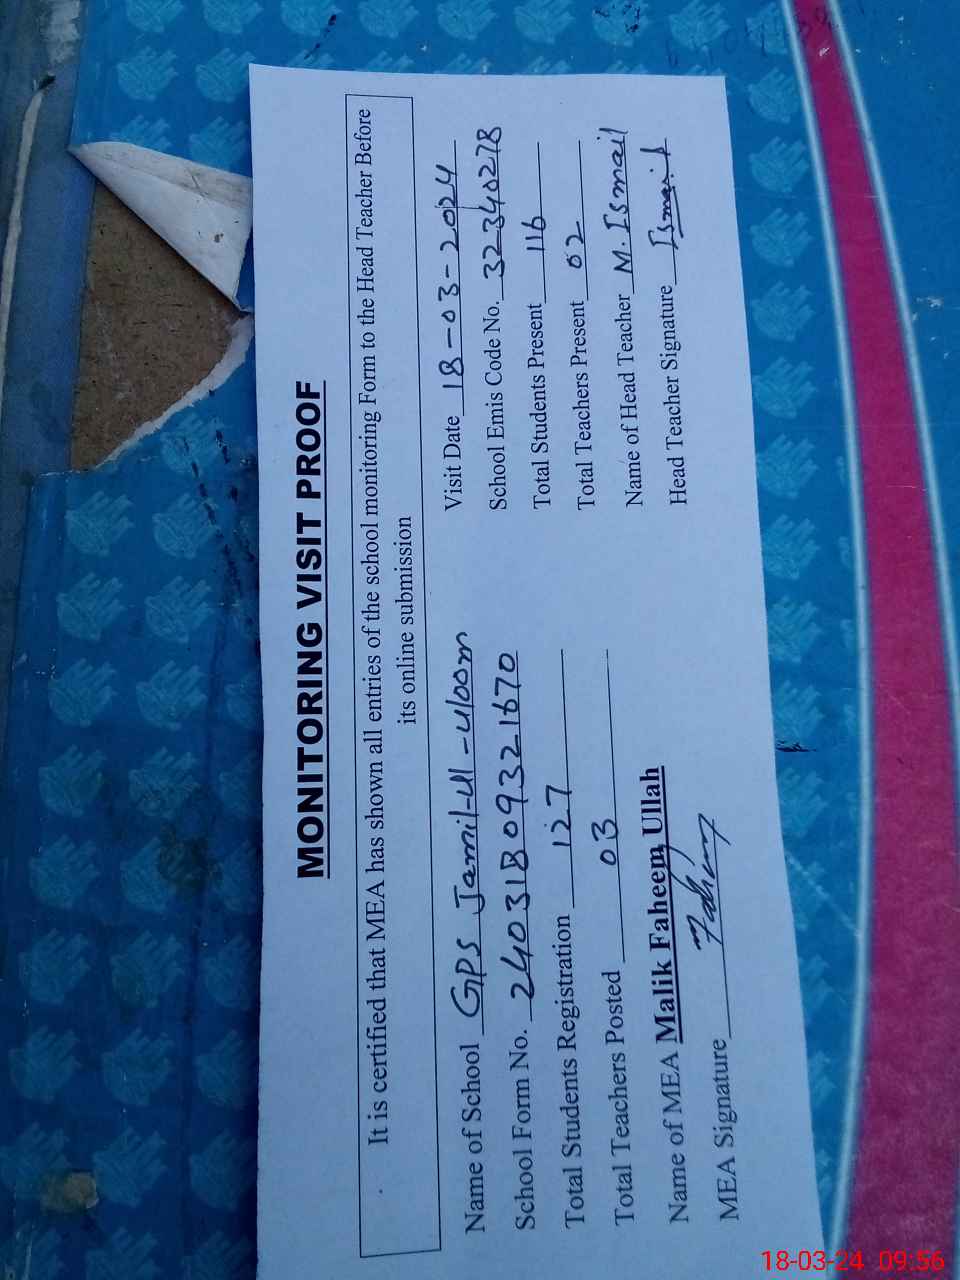 MONITORING VISIT PROOF
It is certified that MEA has shown all entries of the school monitoring Form to the Head Teacher Before
its online submission
Name of School GPS Jamil-ul-uloom
Visit Date 18-03-2024
School Form No. 2403180932 1670
School Emis Code No. 32340278
Total Students Registration 127
Total Students Present 116
Total Teachers Posted 03
Total Teachers Present 02
Name of MEA Malik Faheem Ullah
Name of Head Teacher M. Ismail
MEA Signature Faheem
Head Teacher Signature Ismail
18-03-24 09:56